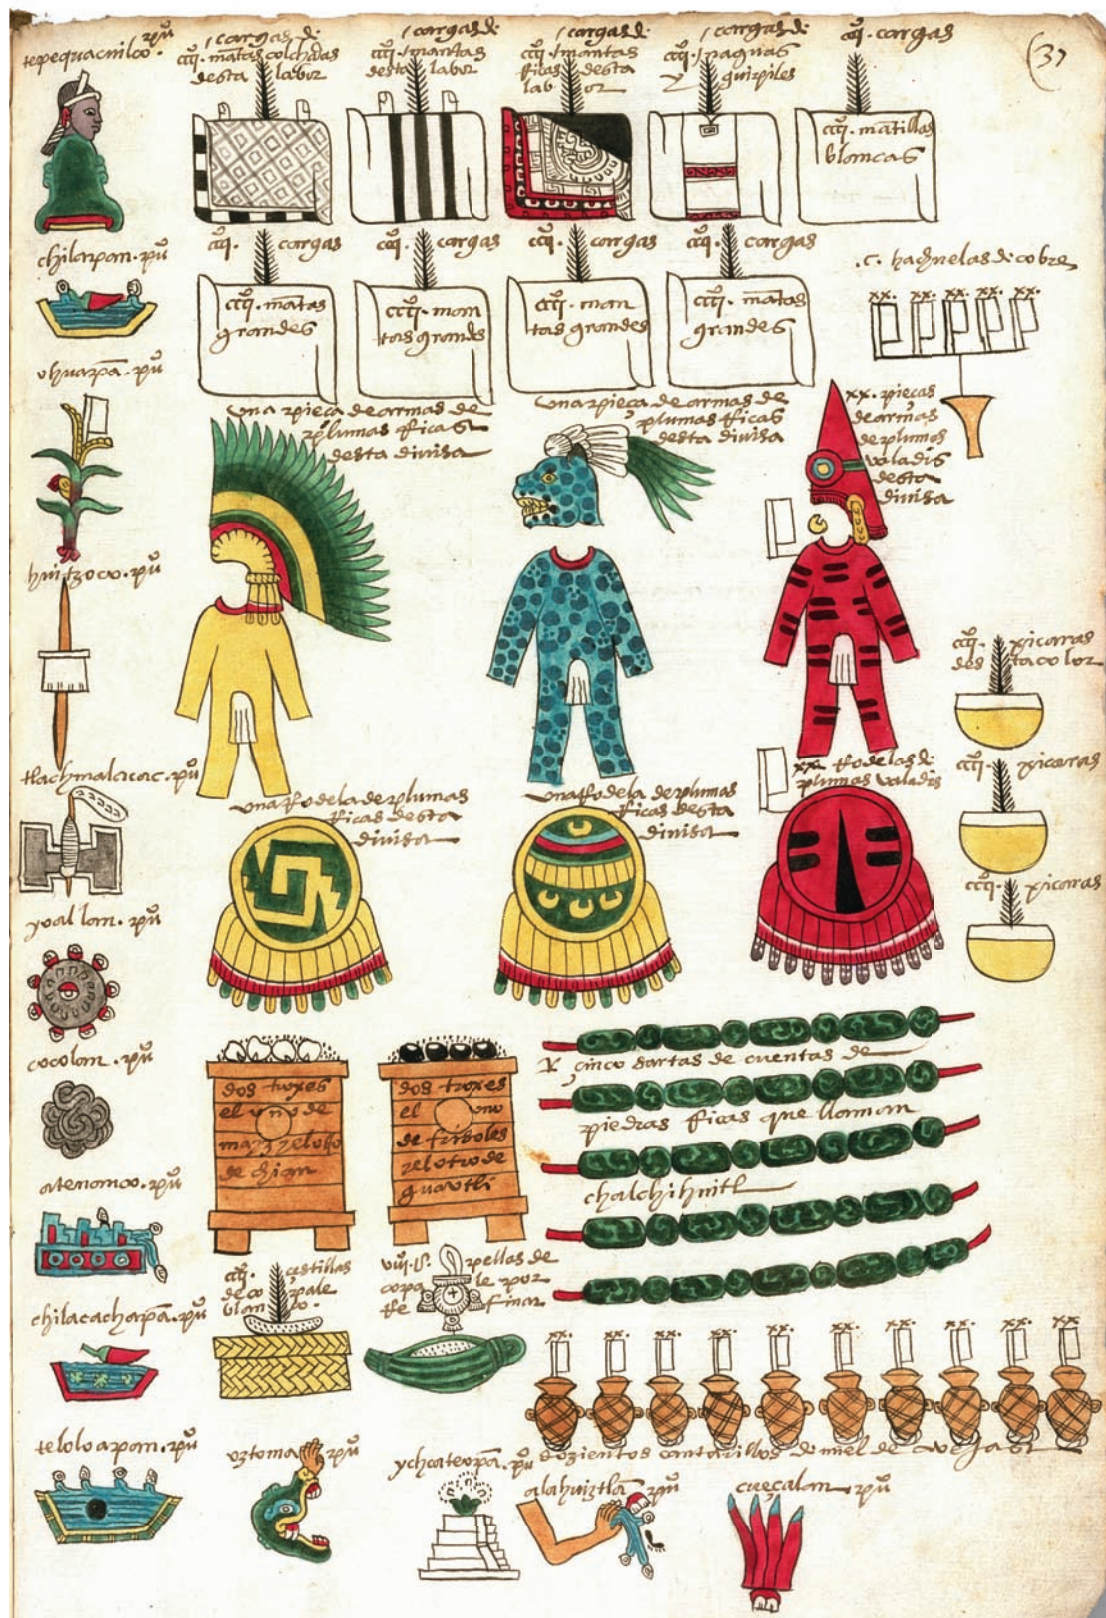 (37
tepequacuilco. pu°
/ cargas de
cccc°. mãtas colchadas
desta labor
/ cargas de
cccc°. mantas
desta labor
/ cargas de
cccc°. mantas
ricas desta
labor
/ cargas de
cccc°. naguas
y guipiles
cccc°. cargas
cccc°. mãtillas
blancas
chilapan. pu°
cccc°. cargas
cccc°. mãtas
grandes
cccc°. cargas
cccc°. man
tas grandes
cccc°. cargas
cccc°. man
tas grandes
cccc°. cargas
cccc°. mãtas
grandes
.c. hachuelas de cobre
xx. xx. xx. xx. xx.
ohuapã. pu°
una pieça de armas de
plumas ricas
desta divisa
una pieça de armas de
plumas ricas
desta divisa
xx. pieças
de armas
de plumas
valadis
desta
divisa
huitzoco. pu°
cccc°. xicaras
desta color
cccc°. xicaras
cccc°. xicaras
tlachmalacac. pu°
una rodela de plumas
ricas desta
divisa
una rodela de plumas
ricas desta
divisa
xx. rodelas de
plumas valadis
yoallan. pu°
cocolan. pu°
dos troxes
el uno de
mayz y el otro
de chian
dos troxes
el uno
de frisoles
y el otro de
guautli
cinco sartas de cuentas de
piedras ricas que llaman
chalchihuitl
atenanco. pu°
cccc°. cestillas
de copale
blanco.
viii. U. pellas de
copale por
refinar
chilacachapã. pu°
xx. xx. xx. xx. xx. xx. xx. xx. xx. xx
dozientos cantarillos de miel de avejas
teloloapan. pu°
oztoma. pu°
ychcateopã. pu°
alahuiztlã. pu°
cueçalan. pu°